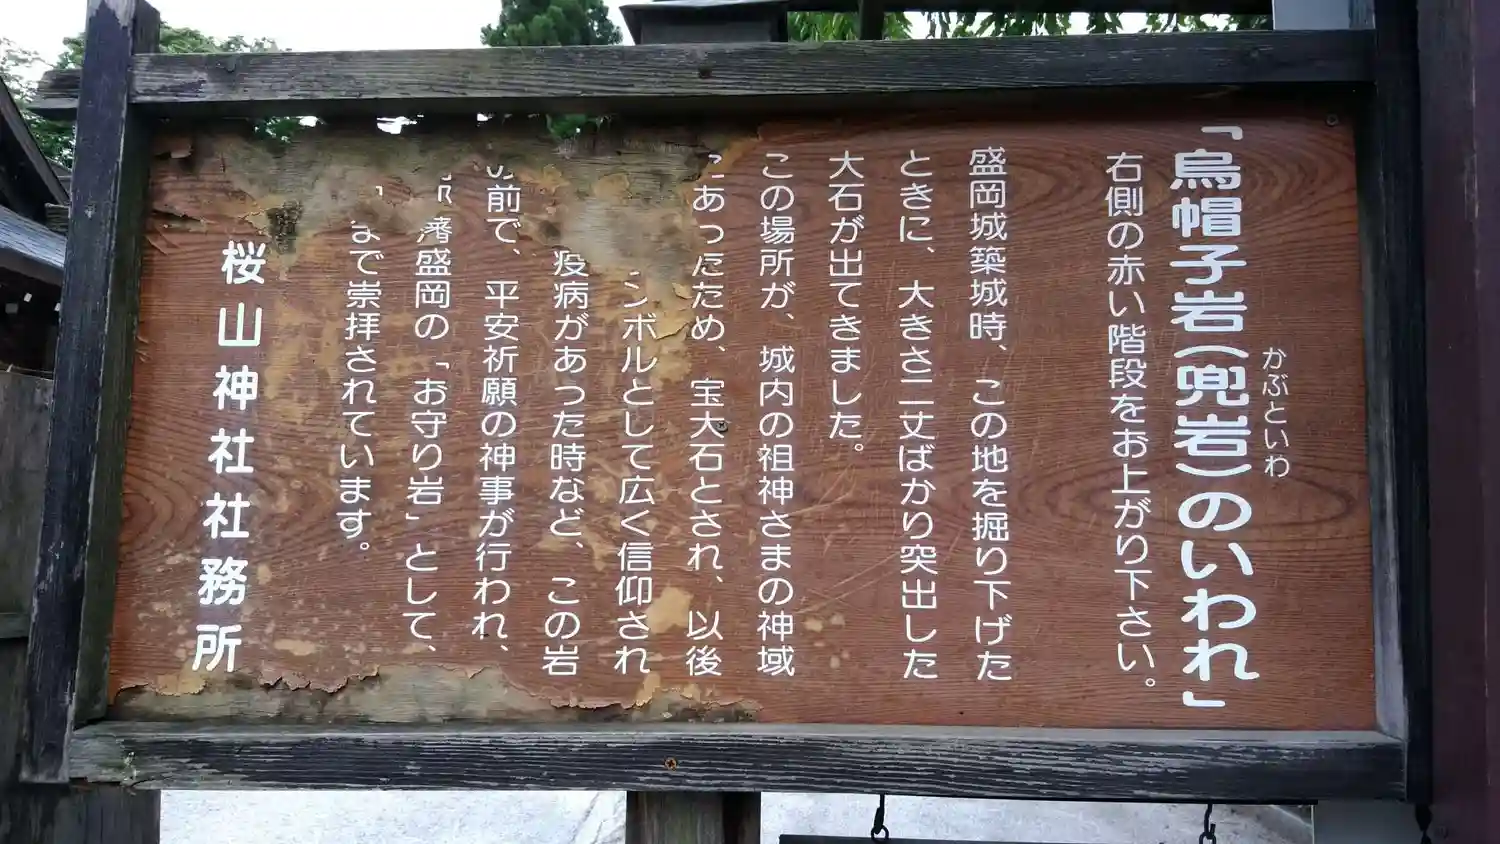 「烏帽子岩(兜岩)のいわれ」
かぶといわ
右側の赤い階段をお上がり下さい。
盛岡城築城時、この地を掘り下げた
ときに、大きさ二丈ばかり突出した
大石が出てきました。
この場所が、城内の祖神さまの神域
にあったため、宝大石とされ、以後
ンボルとして広く信仰され
疫病があった時など、この岩
の前で、平安祈願の神事が行われ、
藩盛岡の「お守り岩」として、
まで崇拝されています。
桜山神社社務所